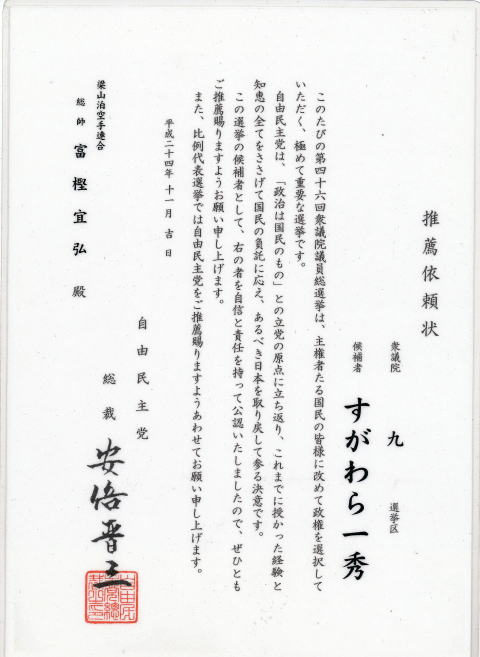 推薦依頼状
衆議院　九　選挙区
候補者　すがわら一秀
このたびの第四十六回衆議院議員総選挙は、主権者たる国民の皆様に改めて政権を選択して
いただく、極めて重要な選挙です。
自由民主党は、「政治は国民のもの」との立党の原点に立ち返り、これまでに授かった経験と
知恵の全てをささげて国民の負託に応え、あるべき日本を取り戻して参る決意です。
この選挙の候補者として、右の者を自信と責任を持って公認いたしましたので、ぜひとも
ご推薦賜りますようお願い申し上げます。
また、比例代表選挙では自由民主党をご推薦賜りますようあわせてお願い申し上げます。
平成二十四年　十一月　吉　日
自由民主党
総裁　安倍晋三
梁山泊空手連合
総師　富樫宜弘　殿